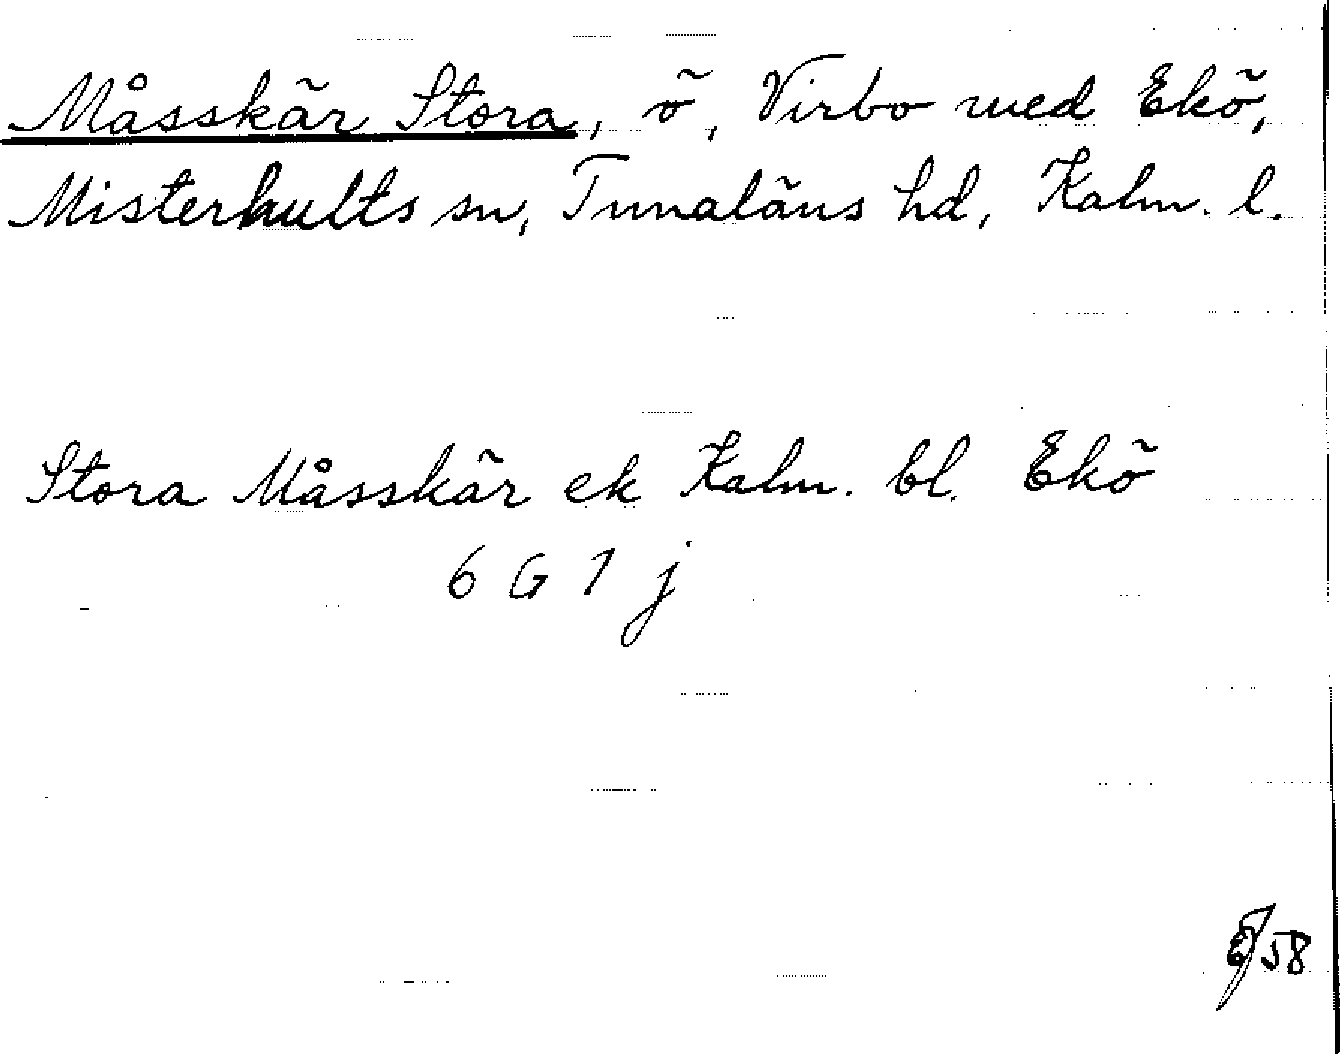 Måsskär Stora, ö, Virbo med Ekö,
Misterhults sn, Tunaläns hd, Kalm. l.
Stora Måsskär ek Kalm. bl. Ekö
6 G 1 j
58